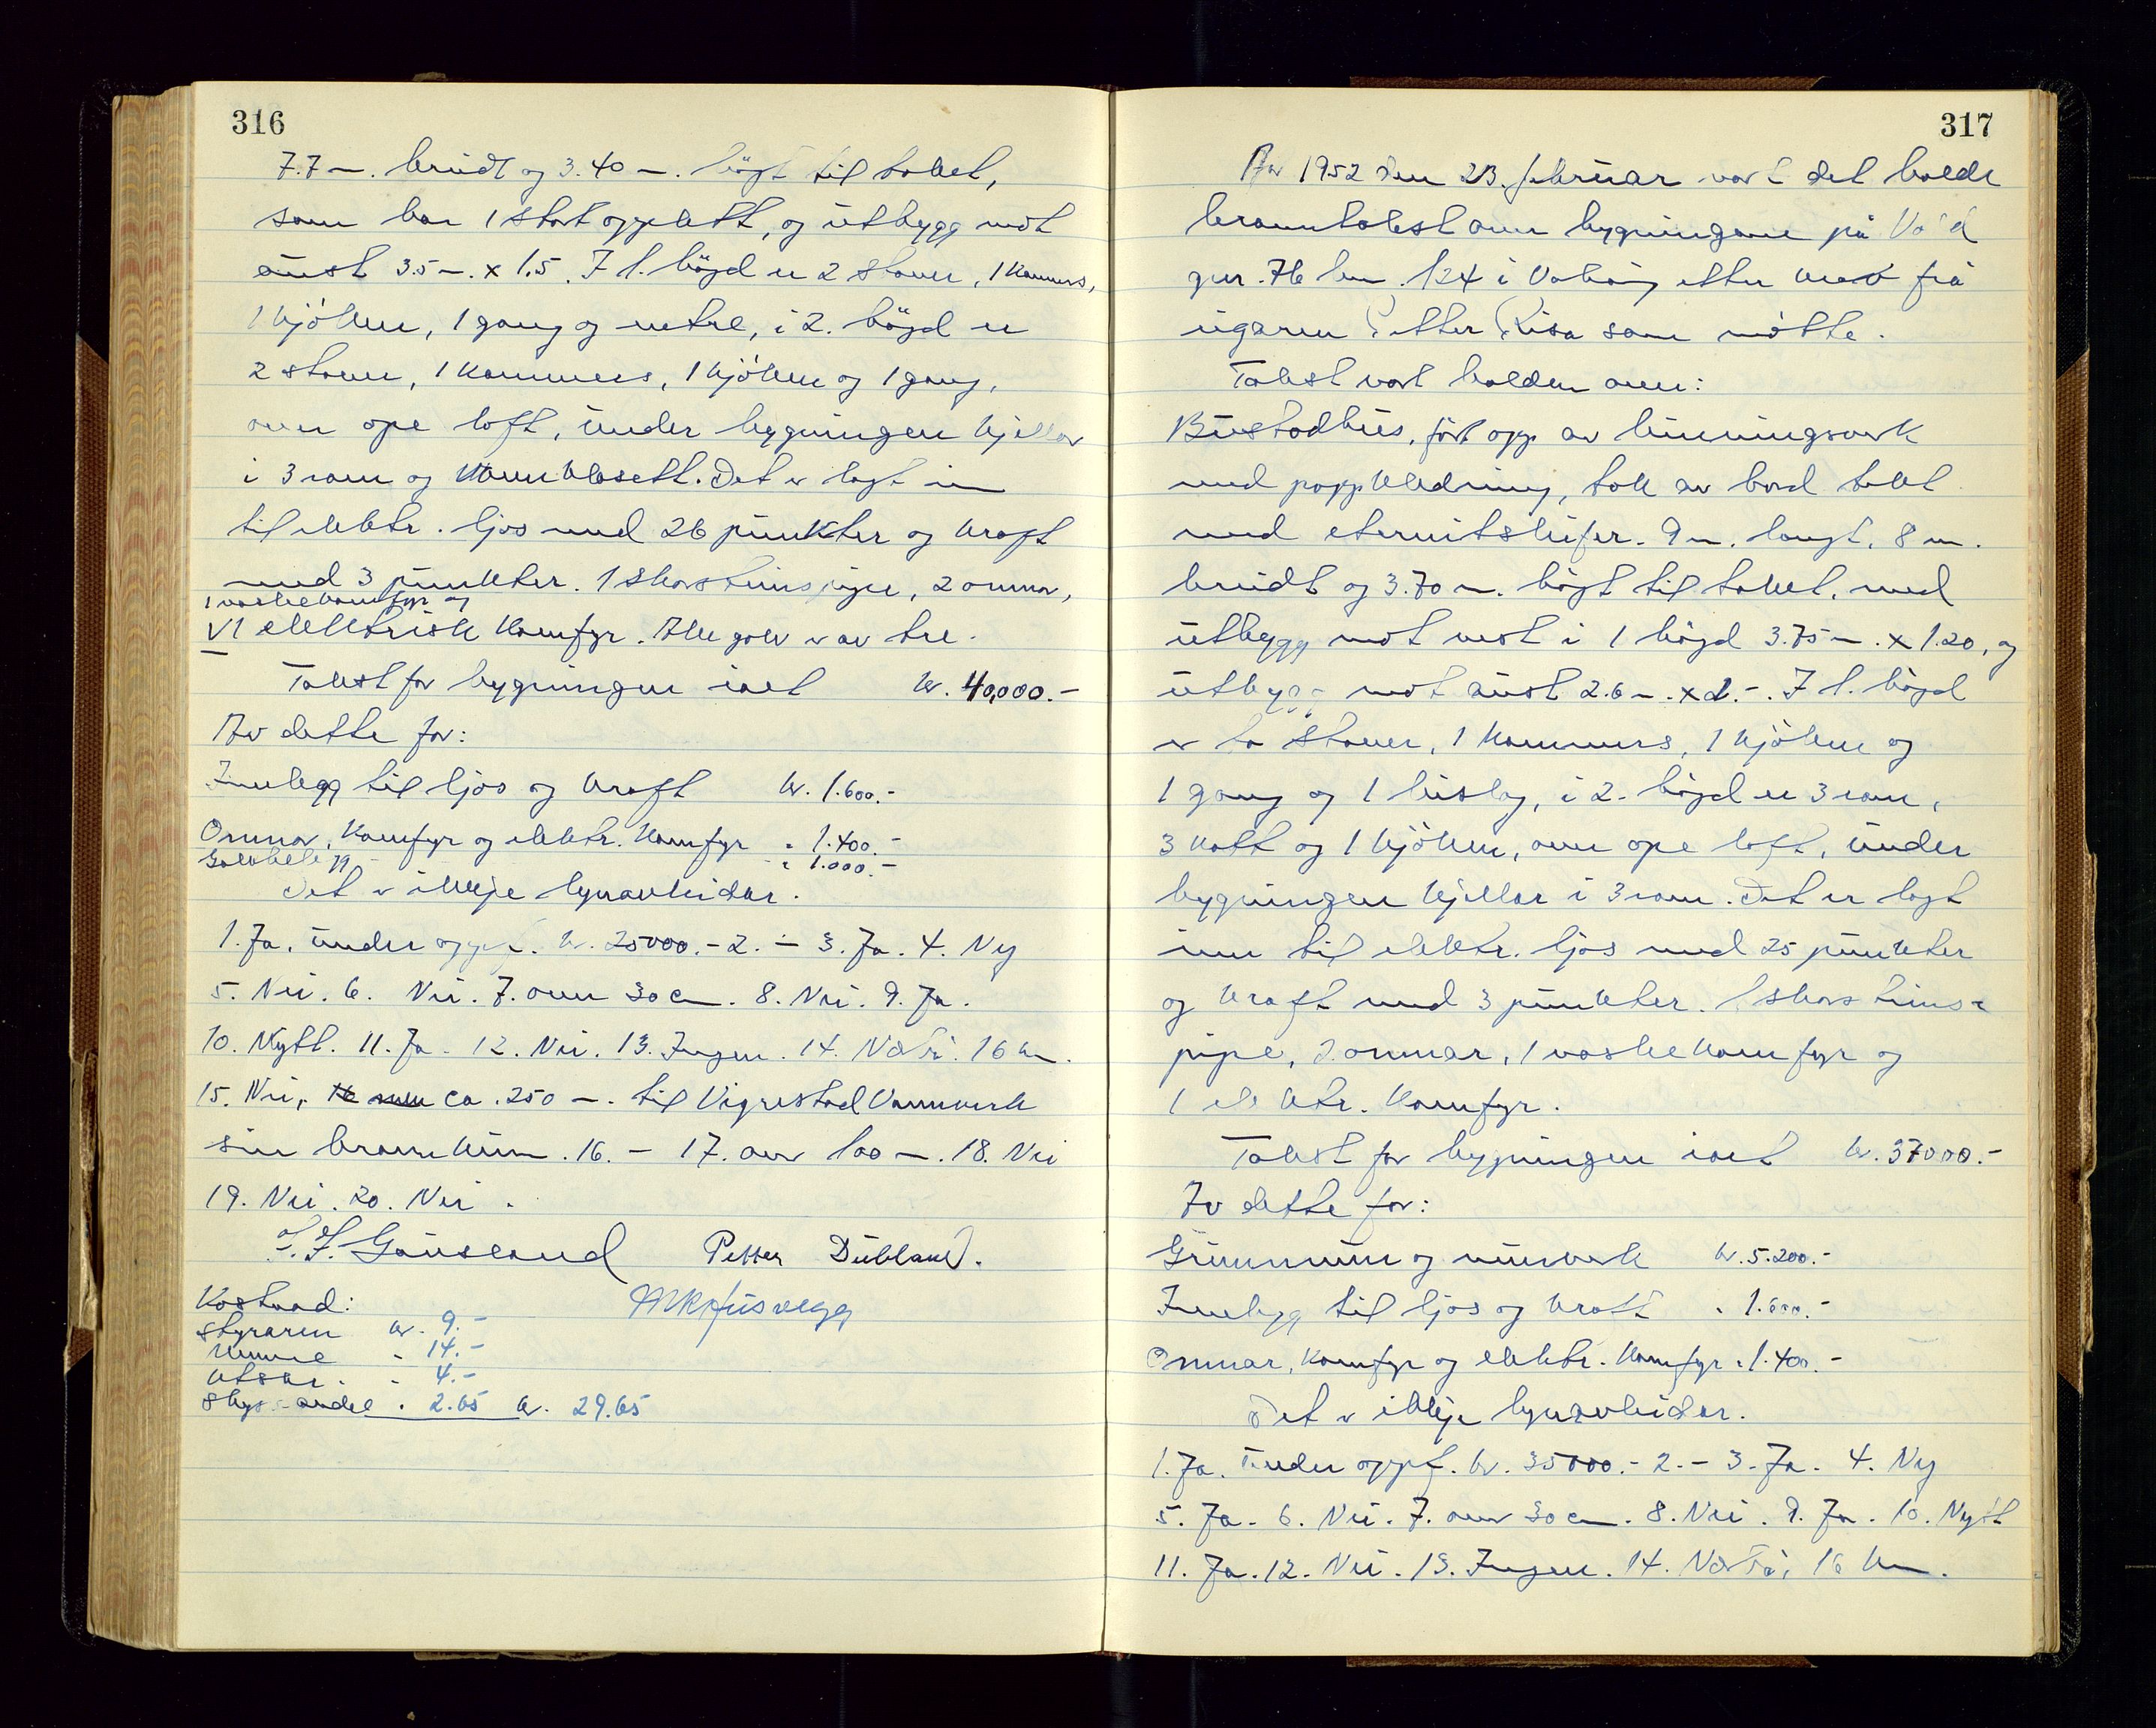 316
7.7 m. breidt og 3.40 m. högt til taket,
som har 1 stort opplett, og utbygg mot
aust 3.5 m. x 1.5. I 1. högd er 2 stover, 1 kammers,
1 kjökken, 1 gang og netre, i 2. högd er
2 stover, 1 kammers, 1 kjökken og 1 gang,
over ope loft, under bygningen kjellar
i 3 rom og vannklosett. Det er lagt inn
til elektr. ljos med 26 punkter og kraft
med 3 punkter. 1 skorsteinspipe, 2 omnar,
1 vaskekomfyr og
V1 elektrisk komfyr. Alle golv er av tre.
Takst for bygningen ialt kr. 40,000.-
Av dette for:
Innlegg til ljos og kraft kr. 1.600.-
Omnar, komfyr og elektr. komfyr " 1.400.-
Golvbelegg " 1.000.-
Det er ikkje lynavleidar.
1. Ja. under oppf. kr. 25000.- 2. - 3. Ja. 4. Ny
5. Nei. 6. Nei. 7. over 30 cm. 8. Nei. 9. Ja.
10. Nytt. 11. Ja. 12. Nei. 13. Ingen. 14. Nærbö. 16 km.
15. Nei, ca. 250 m. til Vigrestad Vannverk
sin brannkum. 16. - 17. over 100 m. 18. Nei
19. Nei. 20. Nei.
Gausland Petter Dubland.
Kostnad:
Styraren kr. 9.-
Menne " 14.-
Utskr. " 4.-
Skyss-andel " 2.65 kr. 29.65
317
År 1952 den 23. februar vart det halde
branntakst over bygningane på
gnr. 76 bnr. 124 i Varhaug etter krav frå
eigaren Petter Risa som møtte.
Takst vart halden over:
Bustadhus, fört opp av binningsverk
med pappkledning, tak av bord tekt
med eternitskifer. 9 m. langt, 8 m.
breidt og 3.70 m. högt til taket, med
utbygg mot vest i 1 högd 3.75 m. x 1.20, og
utbygg mot aust 2.6 m. x 2.-. I 1. högd
er to stover, 1 kammers, 1 kjökken og
1 gang og 1 bislag, i 2. högd er 3 rom,
3 kott og 1 kjökken, over ope loft, under
bygningen kjellar i 3 rom. Det er lagt
inn til elektr. ljos med 25 punkter
og kraft med 3 punkter. 1 skorsteins-
pipe, 2 omnar, 1 vaskekomfyr og
1 elektr. komfyr.
Takst for bygningen ialt kr. 37000.-
Av dette for:
Grunnmur og murverk kr. 5.200.-
Innlegg til ljos og kraft " 1.600.-
Omnar, komfyr og elektr. komfyr " 1.400.-
Det er ikkje lynavleidar.
1. Ja. Under oppf. kr. 35000.- 2. - 3. Ja. 4. Ny
5. Ja. 6. Nei. 7. over 30 cm. 8. Nei. 9. Ja. 10. Nytt
11. Ja. 12. Nei. 13. Ingen. 14. Nærbö, 16 km.